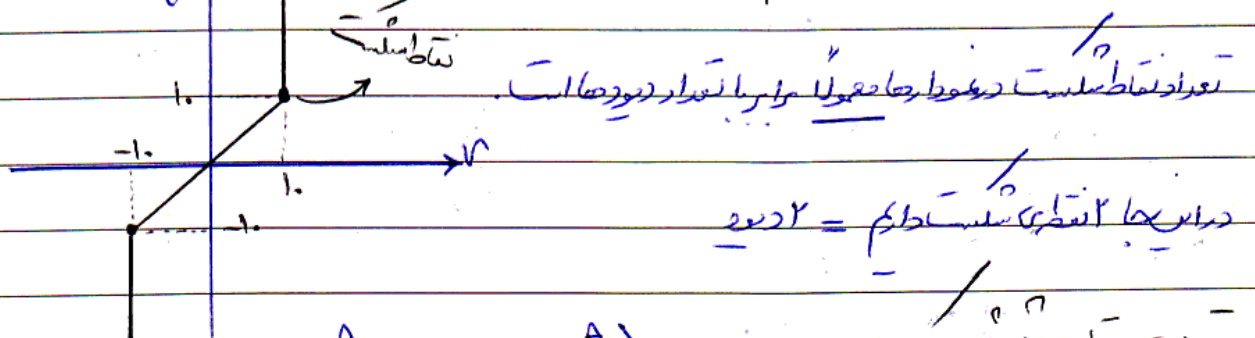 نقاط شکست
تعداد نقاط شکست در نمودارها معمولاً برابر با تعداد دیودها است.
۱۰
-۱۰
V
۱۰
در این جا ۲ نقطه‌ی شکست داریم = ۲ دیود
-۱۰